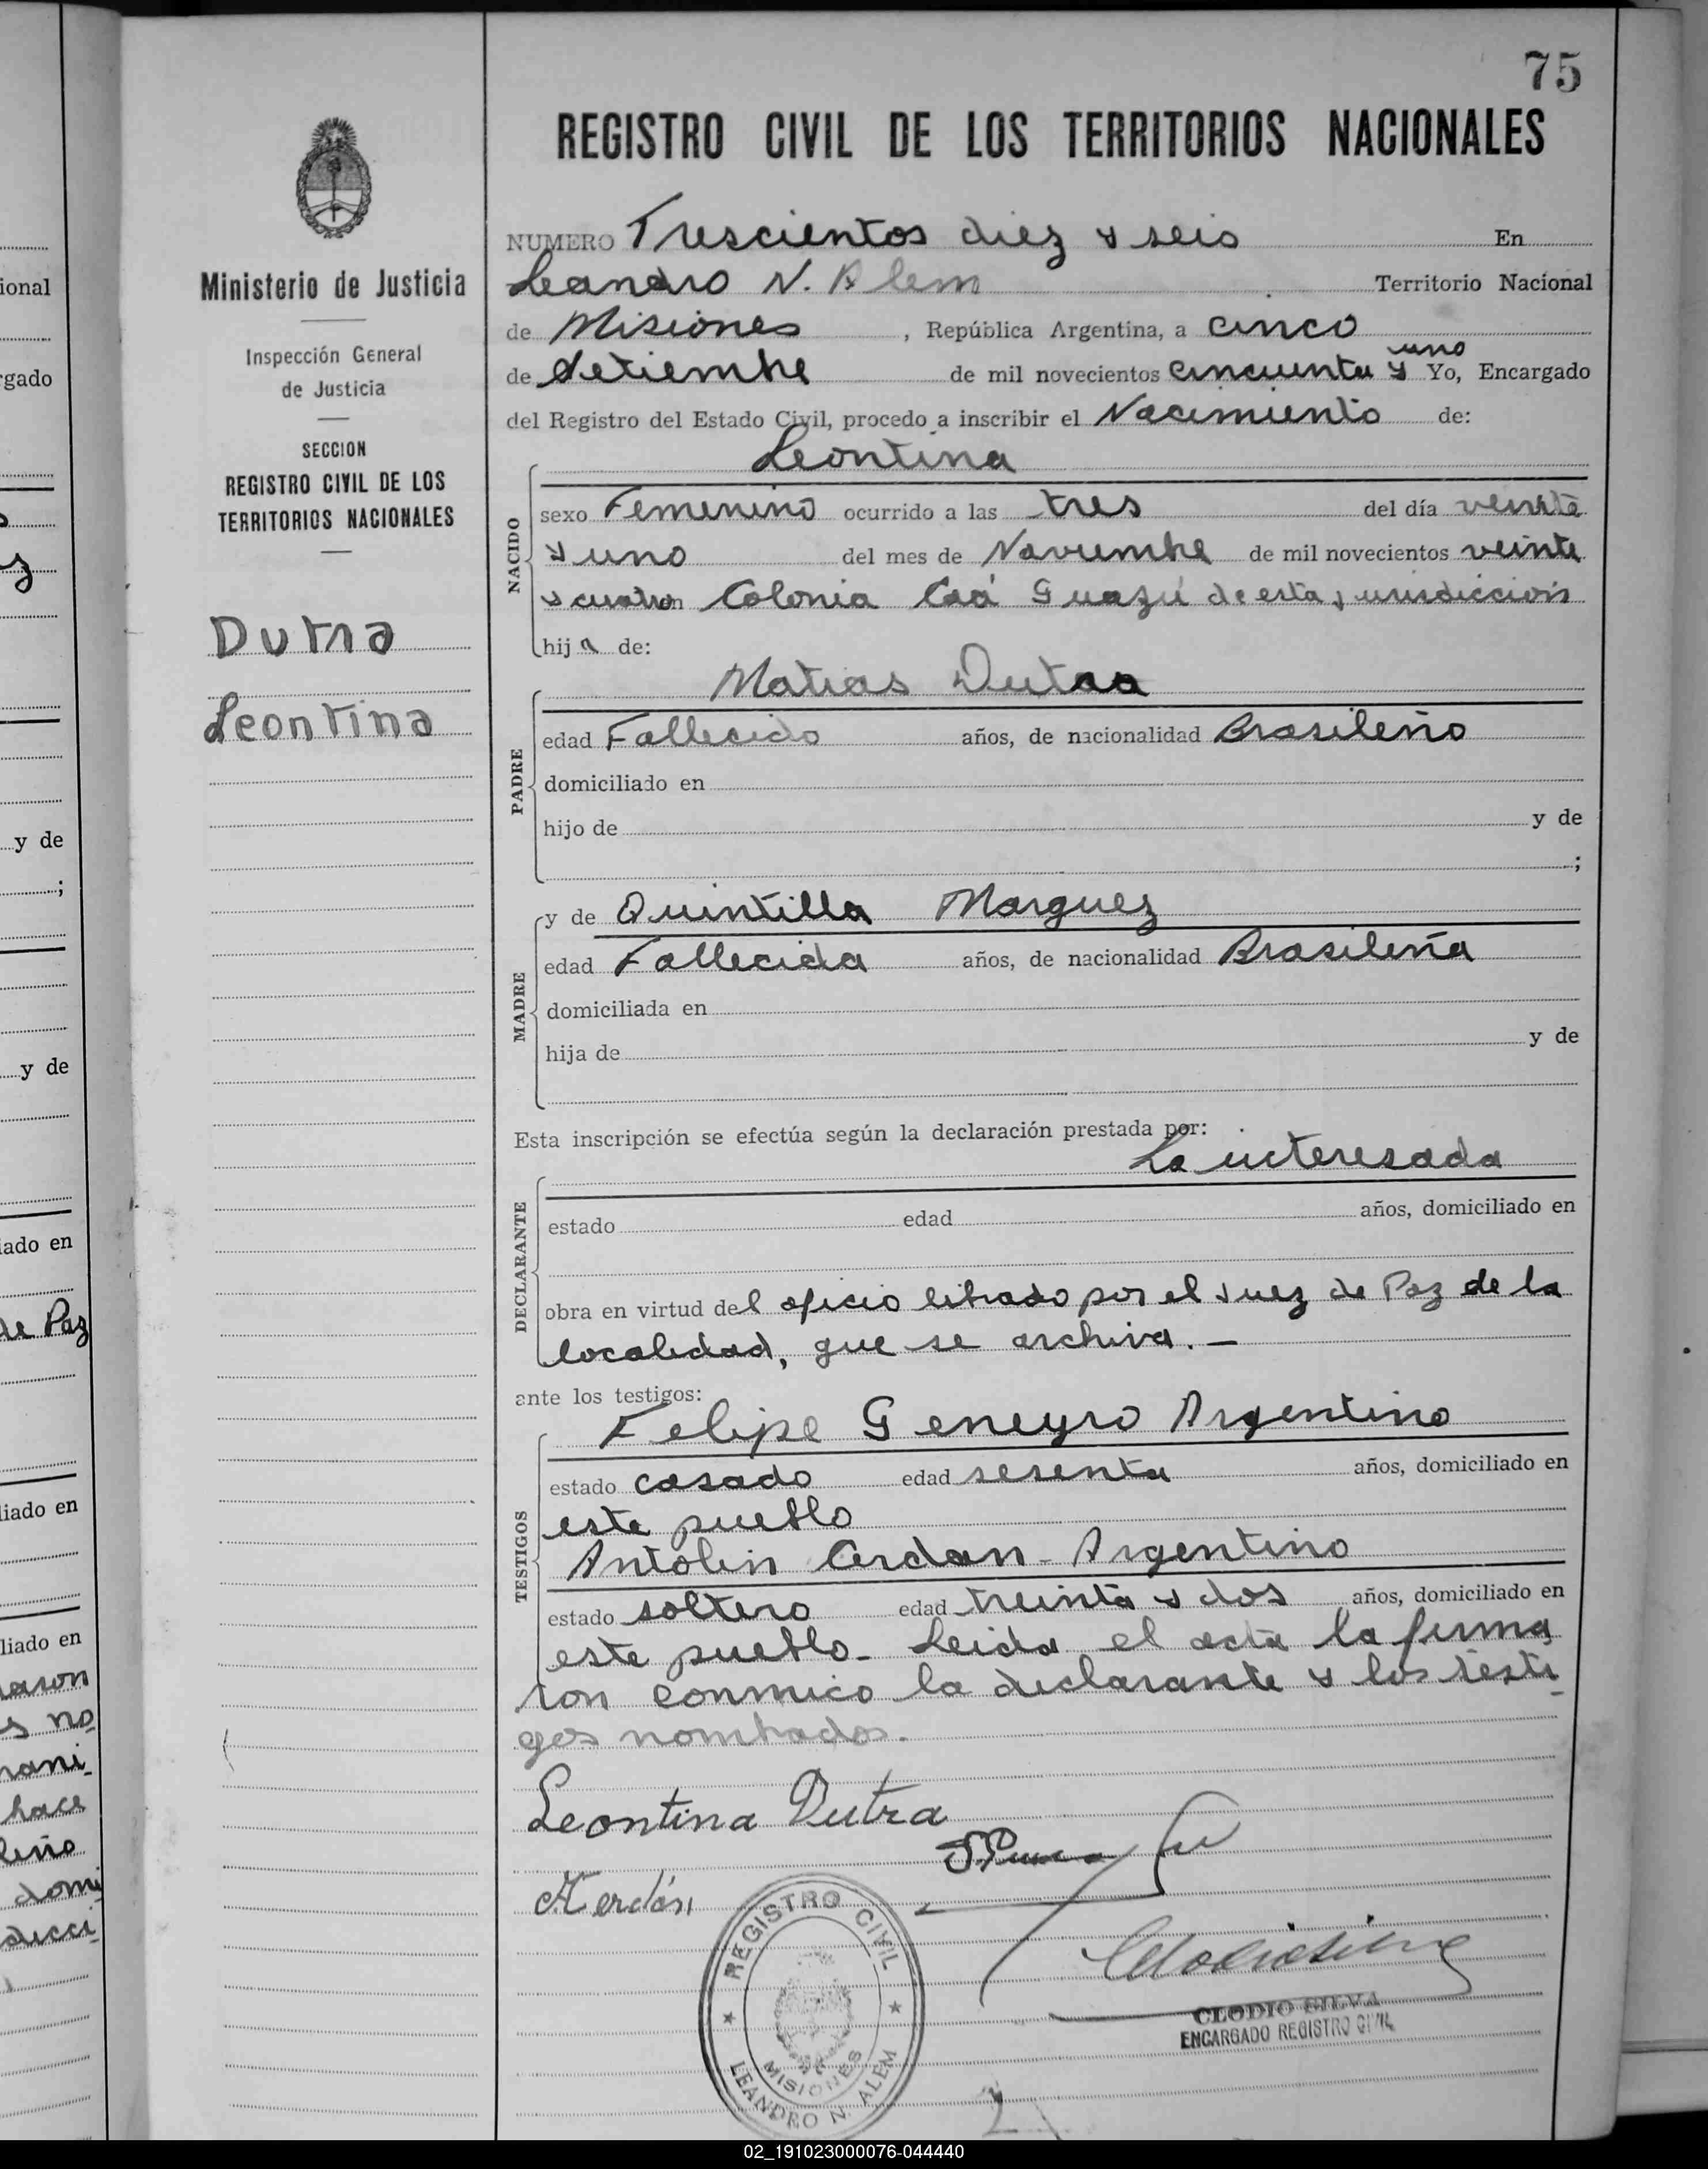 75
REGISTRO CIVIL DE LOS TERRITORIOS NACIONALES
Ministerio de Justicia
Inspección General
de Justicia
SECCION
REGISTRO CIVIL DE LOS
TERRITORIOS NACIONALES
Dutra
Leontina
NUMERO Trescientos diez y seis En
Leandro N. Alem Territorio Nacional
de Misiones, República Argentina, a cinco
de Setiembre de mil novecientos cincuenta y uno Yo, Encargado
del Registro del Estado Civil, procedo a inscribir el Nacimiento de:
NACIDO
Leontina
sexo Femenino ocurrido a las tres del día veinte
y uno del mes de Noviembre de mil novecientos veinte
y cuatro en Colonia Caá Guazú de esta jurisdiccion
hija de:
PADRE
Matias Dutra
edad Fallecido años, de nacionalidad Brasileño
domiciliado en
hijo de y de
;
MADRE
y de Quintilla Marquez
edad Fallecida años, de nacionalidad Brasileña
domiciliada en
hija de y de
Esta inscripción se efectúa según la declaración prestada por:
DECLARANTE
La interesada
estado edad años, domiciliado en
obra en virtud del oficio librado por el Juez de Paz de la
localidad, que se archiva. —
ante los testigos:
TESTIGOS
Felipe Geneyro Argentino
estado casado edad sesenta años, domiciliado en
este pueblo
Antolin Cerdan - Argentino
estado soltero edad treinta y dos años, domiciliado en
este pueblo - Leida el acta la firma
ron conmico la declarante y los testi-
gos nombrados.
Leontina Dutra
REGISTRO CIVIL
MISIONES
LEANDRO N. ALEM
CLODIO SILVA
ENCARGADO REGISTRO CIVIL
ional
rgado
y de
;
y de
iado en
de Paz
liado en
liado en
aron
s no
mani-
hace
leño
domi
dicci-
02_191023000076-044440